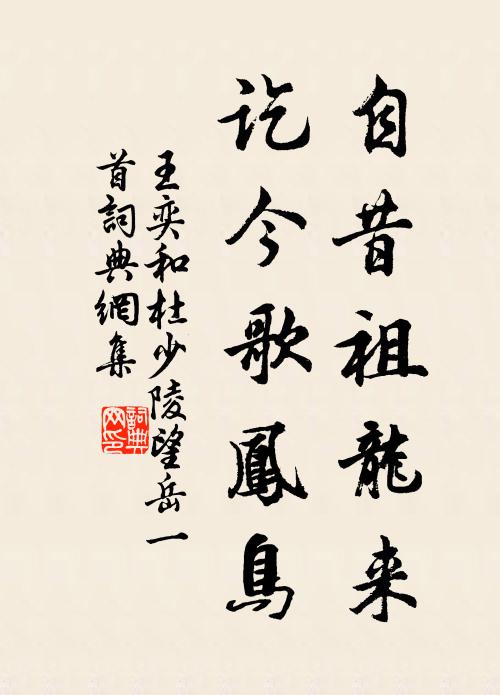 自昔祖龍来
訖今歌鳳鳥
王奕和杜少陵望岳一
首詞典網集
詞典
网印